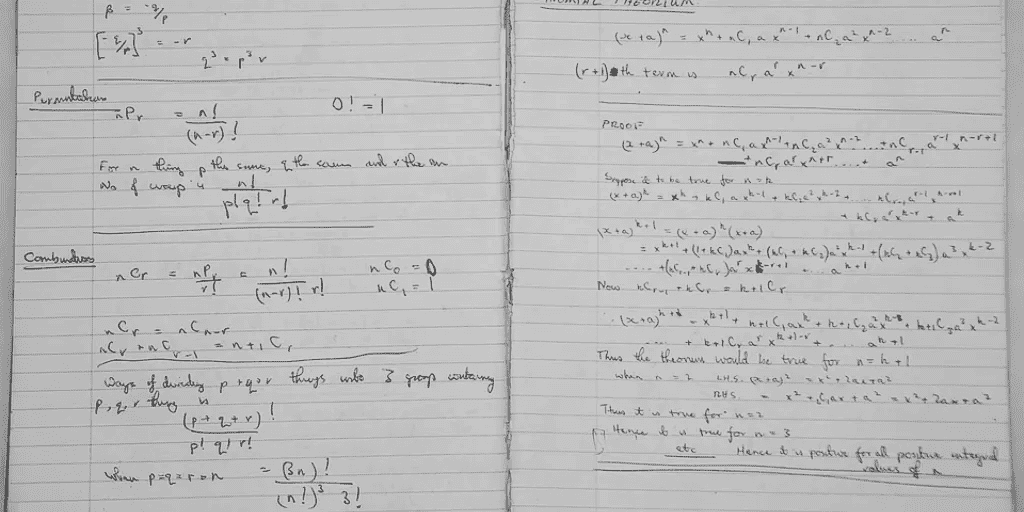 β = -q/p
[-q/p]³ = -r
q³ = p³ r
Permutations
nPr = n! / (n-r)!
0! = 1
For n things p the same, q the same and r the sm
No of ways is n! / p! q! r!
Combinations
nCr = nPr / r! = n! / (n-r)! r!
nC0 = 0
nC1 = 1
nCr = nCn-r
nCr + nCr-1 = n+1Cr
Ways of dividing p+q+r things into 3 group containing
p, q, r things is
(p+q+r)! / p! q! r!
when p=q=r=n = (3n)! / (n!)³ 3!
THEOREM
(x+a)ⁿ = xⁿ + nC1 a xⁿ⁻¹ + nC2 a² xⁿ⁻² .... aⁿ
(r+1)th term is nCr aʳ xⁿ⁻ʳ
PROOF
(x+a)ⁿ = xⁿ + nC1 a xⁿ⁻¹ + nC2 a² xⁿ⁻² ..... + nCr-1 aʳ⁻¹ xⁿ⁻ʳ⁺¹
+ nCr aʳ xⁿ⁺ʳ .... + aⁿ
Suppose it to be true for n=k
(x+a)ᵏ = xᵏ + kC1 a xᵏ⁻¹ + kC2 a² xᵏ⁻² + .... kCr-1 aʳ⁻¹ xᵏ⁻ʳ⁺¹
+ kCr aʳ xᵏ⁻ʳ + aᵏ
(x+a)ᵏ⁺¹ = (x+a)ᵏ (x+a)
= xᵏ⁺¹ + (1+kC1) a xᵏ + (kC1 + kC2) a² xᵏ⁻¹ + (kC2 + kC3) a³ xᵏ⁻²
..... + (kCr-1 + kCr) aʳ xᵏ⁻ʳ⁺¹ ... aᵏ⁺¹
Now kCr-1 + kCr = k+1Cr
(x+a)ᵏ⁺¹ = xᵏ⁺¹ + k+1C1 a xᵏ + k+1C2 a² + k+1C3 a³ xᵏ⁻²
..... + k+1Cr aʳ xᵏ⁺¹⁻ʳ + .... aᵏ⁺¹
Thus the theorem would be true for n=k+1
when n=2 LHS. (x+a)² = x²+2ax+a²
RHS. = x² + 2C1ax + a² = x²+2ax+a²
Thus it is true for n=2
Hence it is true for n=3
etc Hence it is positive for all positive integral
values of n